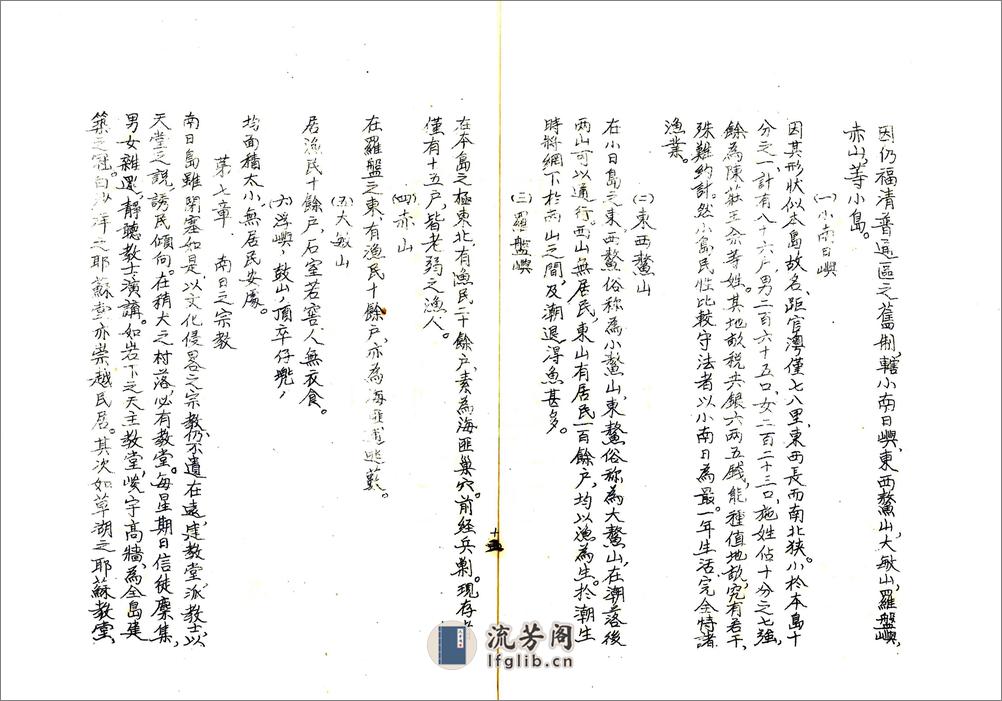 因仍福清普通區之舊制,轄小南日嶼,東西鰲山,大敏山,羅盤嶼,
赤山,等小島。
(一)小南日嶼
因其形狀似本島故名、距官灣僅七八里,東西長而南北狹。小於本島十
分之一,計有八十六户,男二百六十五口,女二百二十三口,施姓佔十分之七強,
餘為陳、莊、王、佘等姓。其地畝稅共銀六兩五錢,能種值地畝,究有若干,
殊難約計。然小島民性比較守法者以小南日為最。一年生活完全恃諸
漁業。
(二)東西鰲山
在小日島之東,西鰲俗称為小鰲山,東鰲俗称為大鰲山,在潮落後
两山可以通行。西山無居民,東山有居民一百餘户,均以漁為生。於潮生
時將網下於两山之間,及潮退得魚甚多。
(三)羅盤嶼
在本島之極東北,有漁民二十餘户,素為海匪巢穴。前经兵剿。現存
僅有十五户,皆老弱之漁人。
(四)赤山
在羅盤之東,有漁民十餘户,亦為海匪逋逃藪。
(五)大敏山
居漁民十餘户,石室若窖,人無衣食。
(六)浮嶼,鼓山,頂卒仔兠,
均面積太小,無居民安處。
第七章 南日之宗教
南日島雖閉塞如是,以文化侵畧之宗教仍不遺在遠,建教堂,派教士,以
天堂之說誘民傾向。在稍大之村落,必有教堂。每星期日信徒麇集,
男女雜還,靜聽教士演講。如岩下之天主教堂,峻宇高牆,為全島建
築之冠。白沙洋之耶蘇堂,亦崇越民居。其次如草湖之耶蘇教堂,
十五
流芳阁
lfglib.cn